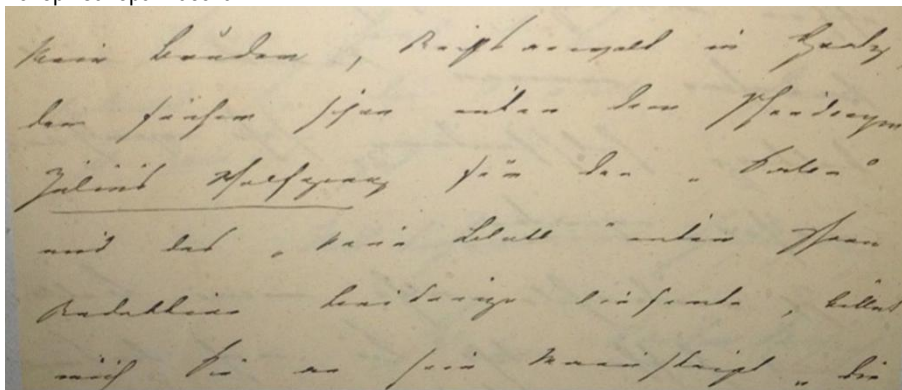 Mein Bruder, Rechtsanwalt in Graz,
der früher schon unter dem Pseudonym
Julius Wolfgang für den „Salon"
und das „Neue Blatt" unter Ihrer
Redaktion Beiträge lieferte, bittet
mich Sie an sein Manuskript „die